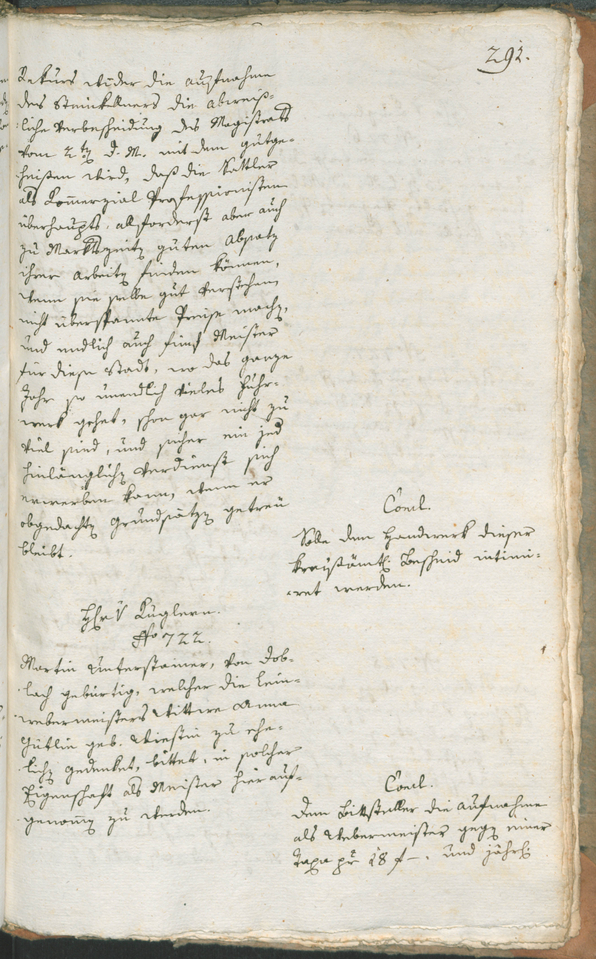 291.
Rekurs wider die Aufnahme
des Steinkellners die abweis-
liche Verbescheidung des Magistrats
vom 2ten d. M. mit dem gutge-
heißen wird, daß die Sattler
als Komerzial Professionisten
überhaupts, alsforderst aber auch
zu Marktzeiten guten Absatz
ihrer Arbeiten finden können,
wenn sie selbe gut verstehen,
nicht überspannte Preise machen,
und endlich auch fünf Meister
für diese Stadt, wo das ganze
Jahr so unendlich vieles Fuhr-
werk gehet, schon gar nicht zu
viel sind, und sicher ein jed
hinlänglichen Verdienst sich
erwerben kann, wenn er
obgedachten Grundsätzen getreu
bleibt.
Concl.
Solle dem Handwerk dieser
kreisämtl: Bescheid intimi-
ret werden.
Hr Kuglern.
No 722.
Martin Unterstainer, von Dob-
lach gebürtig, welcher die Lein-
webermeisters Wittwe Anna
geb. zu ehe-
lichen gedenket, bittet, in solcher
Eigenschaft als Meister hier auf-
genomen zu werden.
Concl.
Dem Bittsteller die Aufnahme
als Webermeister gegen einer
Taxa pr 18 f –. und jährl: